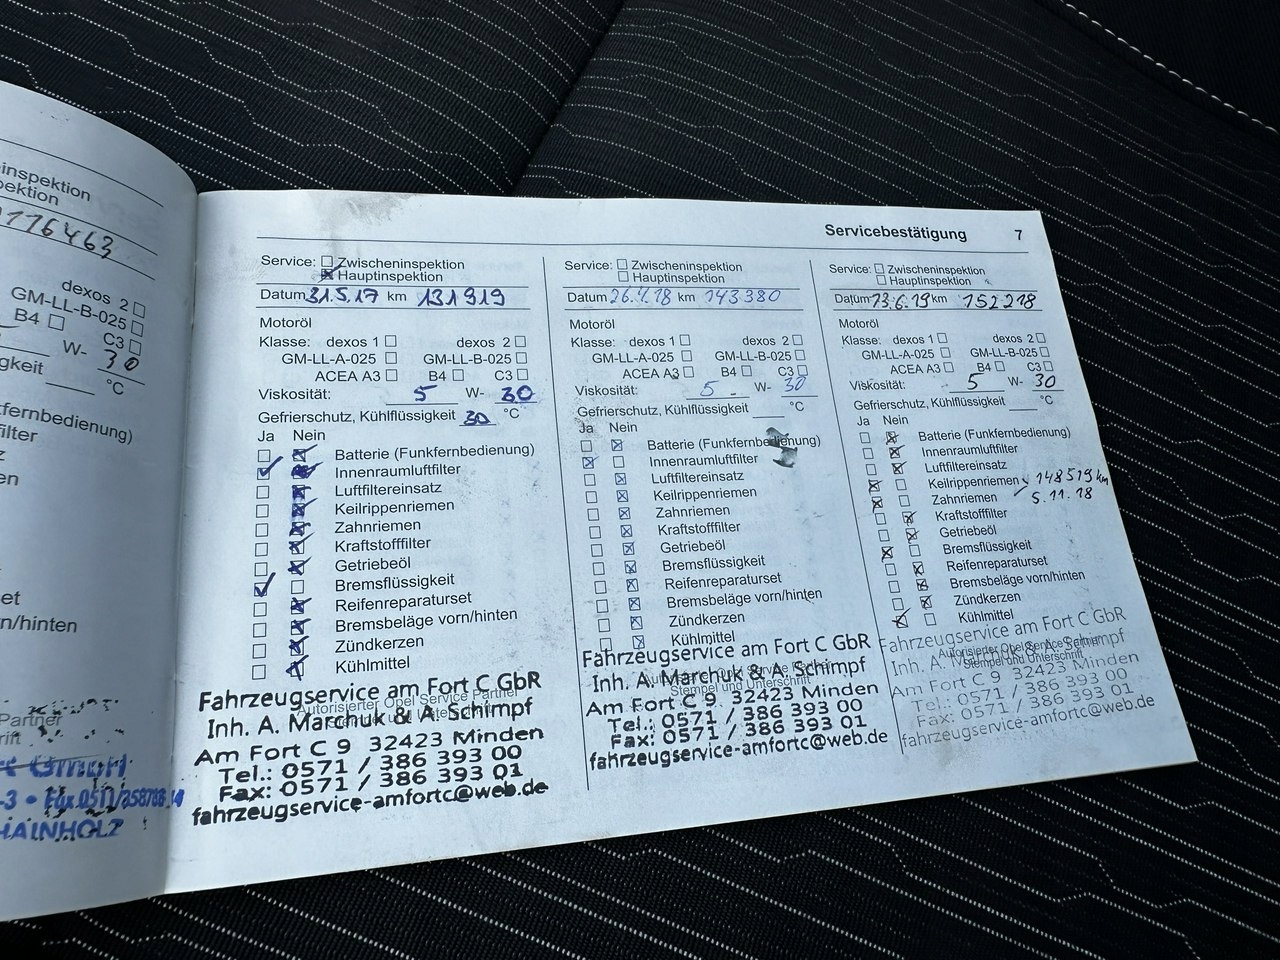 inspektion
pektion
776463
dexos 2
GM-LL-B-025
B4 C3
W- 30
gkeit °C
fernbedienung)
ilter
en
et
n/hinten
Partner
rift
GmbH
-3 • Fax 0511/
HAINHOLZ
Servicebestätigung 7
Service: Zwischeninspektion
Hauptinspektion
Datum 31.5.17 km 131919
Motoröl
Klasse: dexos 1 dexos 2
GM-LL-A-025 GM-LL-B-025
ACEA A3 B4 C3
Viskosität: 5 W- 30
Gefrierschutz, Kühlflüssigkeit 30 °C
Ja Nein
Batterie (Funkfernbedienung)
Innenraumluftfilter
Luftfiltereinsatz
Keilrippenriemen
Zahnriemen
Kraftstofffilter
Getriebeöl
Bremsflüssigkeit
Reifenreparaturset
Bremsbeläge vorn/hinten
Zündkerzen
Kühlmittel
Autorisierter Opel Service Partner
Fahrzeugservice am Fort C GbR
Inh. A. Marchuk & A. Schimpf
Am Fort C 9 32423 Minden
Tel.: 0571 / 386 393 00
Fax: 0571 / 386 393 01
fahrzeugservice-amfortc@web.de
Service: Zwischeninspektion
Hauptinspektion
Datum 26.4.18 km 143380
Motoröl
Klasse: dexos 1 dexos 2
GM-LL-A-025 GM-LL-B-025
ACEA A3 B4 C3
Viskosität: 5 W- 30
Gefrierschutz, Kühlflüssigkeit °C
Ja Nein
Batterie (Funkfernbedienung)
Innenraumluftfilter
Luftfiltereinsatz
Keilrippenriemen
Zahnriemen
Kraftstofffilter
Getriebeöl
Bremsflüssigkeit
Reifenreparaturset
Bremsbeläge vorn/hinten
Zündkerzen
Kühlmittel
Fahrzeugservice am Fort C GbR
Inh. A. Marchuk & A. Schimpf
Stempel und Unterschrift
Am Fort C 9 32423 Minden
Tel.: 0571 / 386 393 00
Fax: 0571 / 386 393 01
fahrzeugservice-amfortc@web.de
Service: Zwischeninspektion
Hauptinspektion
Datum 13.6.19 km 152218
Motoröl
Klasse: dexos 1 dexos 2
GM-LL-A-025 GM-LL-B-025
ACEA A3 B4 C3
Viskosität: 5 W- 30
Gefrierschutz, Kühlflüssigkeit °C
Ja Nein
Batterie (Funkfernbedienung)
Innenraumluftfilter
Luftfiltereinsatz
Keilrippenriemen 148519 km
Zahnriemen 5.11.18
Kraftstofffilter
Getriebeöl
Bremsflüssigkeit
Reifenreparaturset
Bremsbeläge vorn/hinten
Zündkerzen
Kühlmittel
Fahrzeugservice am Fort C GbR
Autorisierter Opel Service Partner
Inh. A. Marchuk & A. Schimpf
Stempel und Unterschrift
Am Fort C 9 32423 Minden
Tel.: 0571 / 386 393 00
Fax: 0571 / 386 393 01
fahrzeugservice-amfortc@web.de